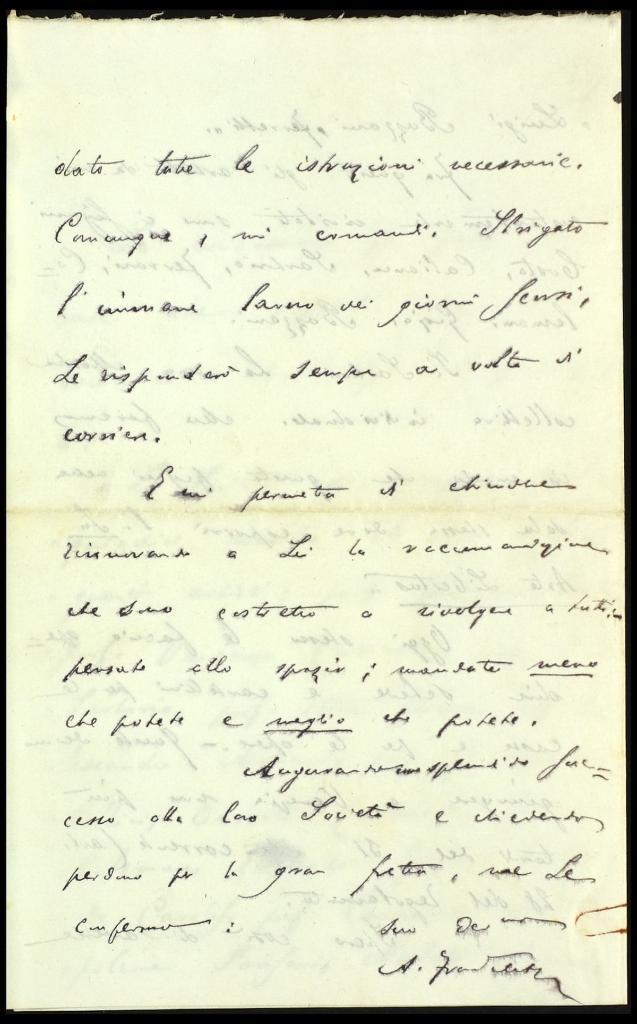 dato tutte le istruzioni necessarie.
Comunque, mi comandi. Strigato
l'immane lavoro dei giorni scorsi,
Le risponderò sempre a volta di
corriere.
E mi permetta di chiudere
rinnovando a Lei la raccomandazione
che sono costretto a rivolgere a tutti:
pensate allo spazio; mandate meno
che potete e meglio che potete.
Augurando uno splendido suc=
cesso alla loro Società e chiedendo
perdono per la gran fretta, me Le
confermo: suo dev.mo
A.